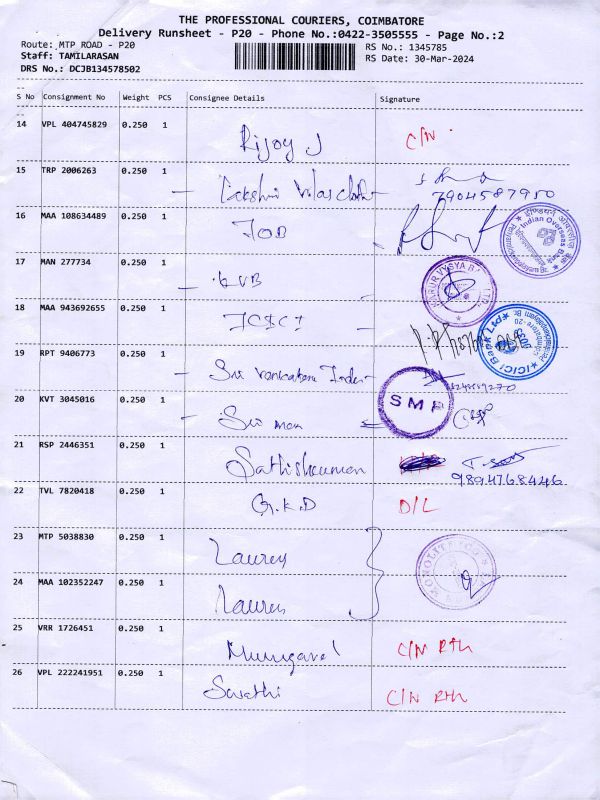 THE PROFESSIONAL COURIERS, COIMBATORE
Delivery Runsheet - P20 - Phone No.:0422-3505555 - Page No.:2
Route: MTP ROAD - P20
Staff: TAMILARASAN
DRS No.: DCJB134578502
RS No.: 1345785
RS Date: 30-Mar-2024
S No Consignment No Weight PCS Consignee Details Signature
14 VPL 404745829 0.250 1 Rijoy J C/N
15 TRP 2006263 0.250 1 Lakshmi 7904587950
16 MAA 108634489 0.250 1 IOB
Indian Overseas Bank
17 MAN 277734 0.250 1 KVB
KARUR VYSYA BANK LTD.
18 MAA 943692655 0.250 1 ICICI
ICICI Bank Ltd
19 RPT 9406773 0.250 1 Sri Venkateswara
20 KVT 3045016 0.250 1 Sri
SMP
21 RSP 2446351 0.250 1 Sathishkumar 9894768446
22 TVL 7820418 0.250 1 G.K.D D/L
23 MTP 5038830 0.250 1 Laurey
24 MAA 102352247 0.250 1
25 VRR 1726451 0.250 1 Murugavel C/N RTN
26 VPL 222241951 0.250 1 Sarathi C/N RTN